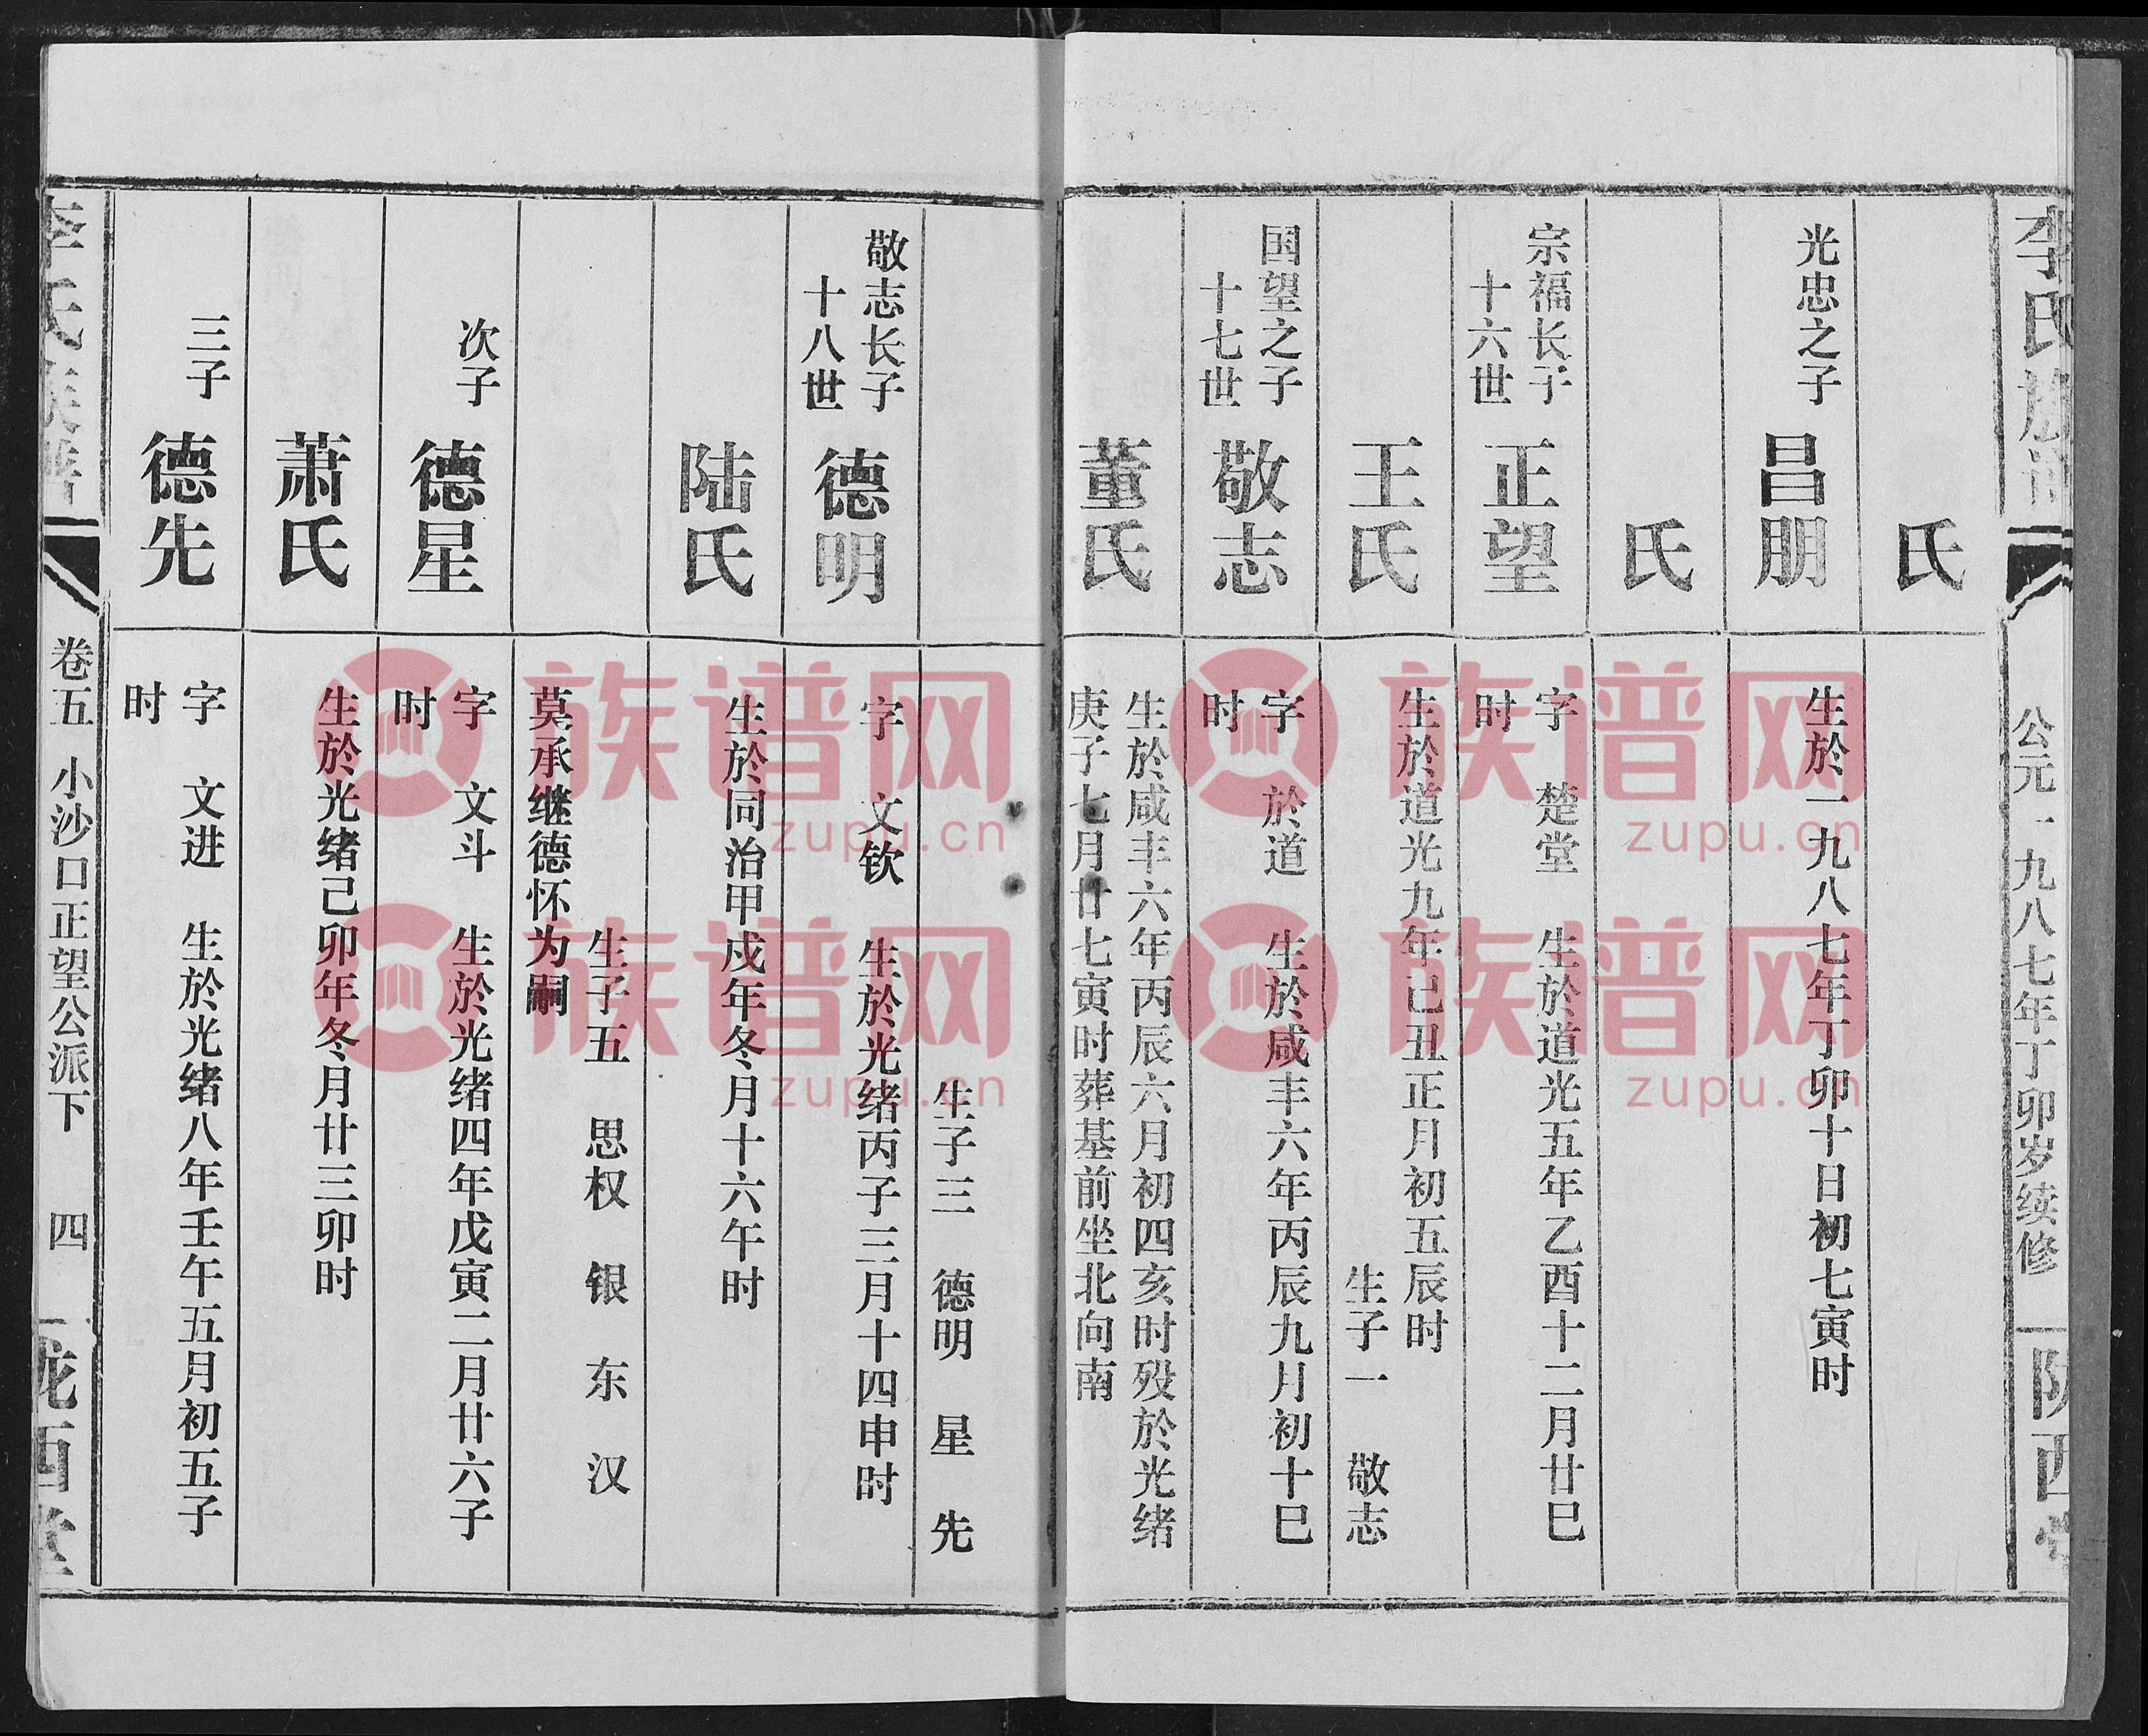 李氏族谱
公元一九八七年丁卯岁续修
陇西堂
氏
光忠之子
昌朋
生於一九八七年丁卯十日初七寅时
氏
宗福长子
十六世
正望
字 楚堂 生於道光五年乙酉十二月廿巳
时
王氏
生於道光九年己丑正月初五辰时
生子一 敬志
国望之子
十七世
敬志
字 於道 生於咸丰六年丙辰九月初十巳
时
董氏
生於咸丰六年丙辰六月初四亥时殁於光绪
庚子七月廿七寅时葬基前坐北向南
生子三 德明 星 先
敬志长子
十八世
德明
字 文钦 生於光绪丙子三月十四申时
陆氏
生於同治甲戍年冬月十六午时
生子五 思权 银 东 汉
莫承继德怀为嗣
次子
德星
字 文斗 生於光绪四年戊寅二月廿六子
时
萧氏
生於光绪己卯年冬月廿三卯时
三子
德先
字 文进 生於光绪八年壬午五月初五子
时
李氏族谱
卷五 小沙口正望公派下 四
陇西堂
族谱网
zupu.cn
族谱网
zupu.cn
族谱网
zupu.cn
族谱网
zupu.cn